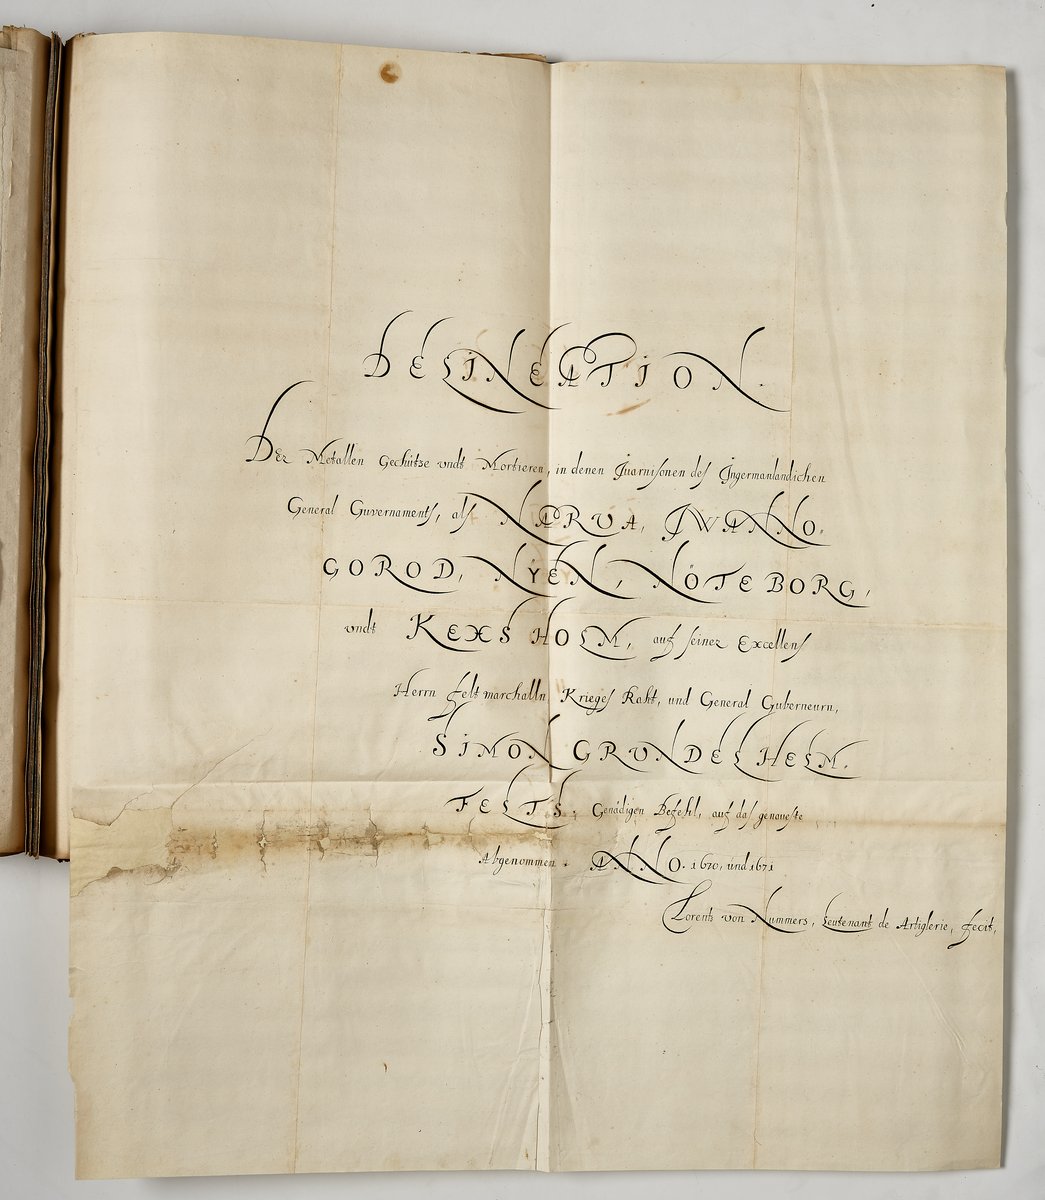 DELINEATION.
Der Metallen Geschütze undt Mortieren, in denen Guarnisonen des Ingermanlandichen
General Guvernaments, als NARVA, IWANNO.
GOROD, NYEN, NÖTEBORG,
undt KEXSHOLM, auf seiner Excellens
Herrn Feltmarchalln, Krieges Raht, und General Guberneurn,
SIMON GRUNDELHELM.
FELTS, Genädigen Befehl, auf das genaueste
Abgenommen. ANNO. 1670, und 1671
Lorents von Nummers, Leutenant de Artiglerie, fecit,